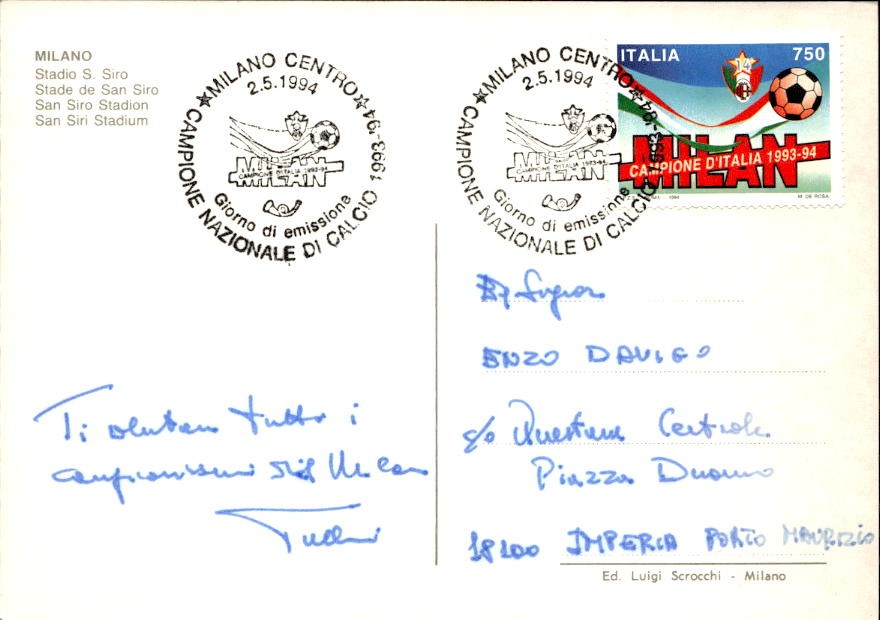 MILANO
Stadio S. Siro
Stade de San Siro
San Siro Stadion
San Siri Stadium
☆MILANO CENTRO☆
2.5.1994
MILAN
CAMPIONE D'ITALIA 1993-94
Giorno di emissione
CAMPIONE NAZIONALE DI CALCIO 1993-94
☆MILANO CENTRO☆
2.5.1994
MILAN
CAMPIONE D'ITALIA 1993-94
Giorno di emissione
CAMPIONE NAZIONALE DI CALCIO 1993-94
ITALIA 750
14
MILAN
CAMPIONE D'ITALIA 1993-94
1994 M. DE ROSA
ENZO DAVIGO
c/o Questura Centrale
Piazza Duomo
18100 IMPERIA PORTO MAURIZIO
Ti salutano tutti i
campionissimi del Milan
Ed. Luigi Scrocchi - Milano